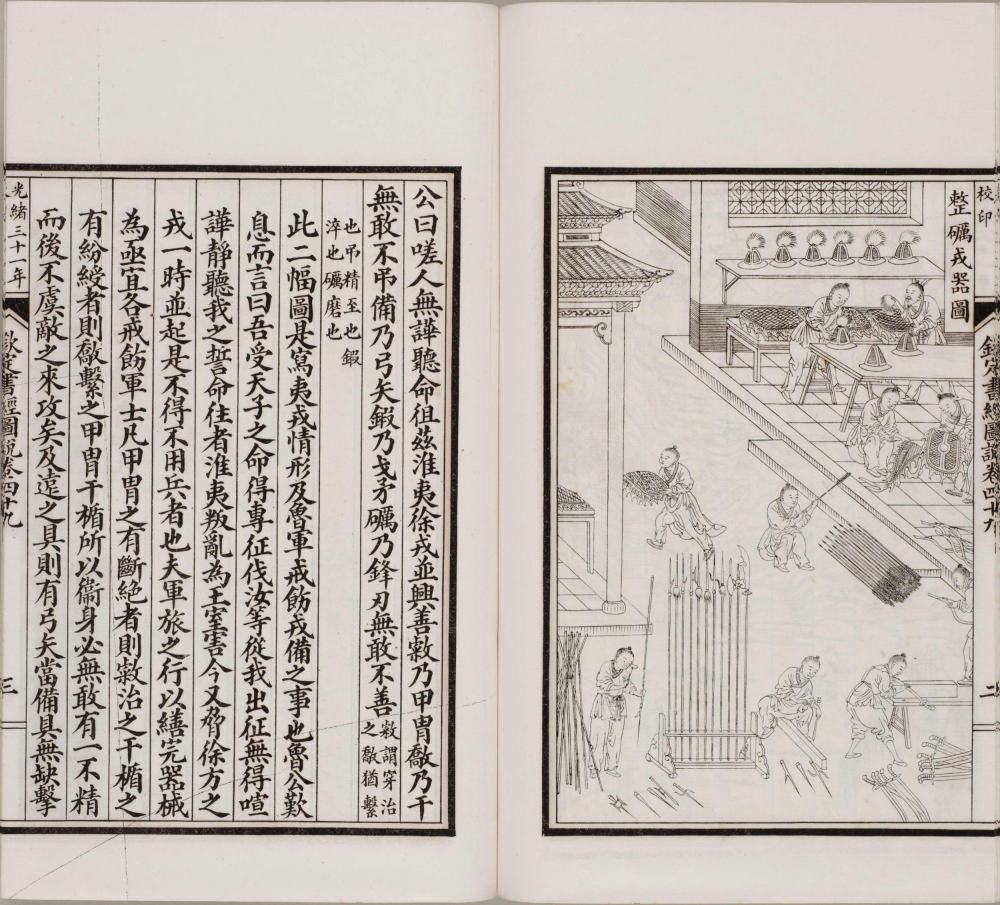 校印
欽定書經圖說卷四十九
二
整礪戎器圖
公曰嗟人無譁聽命徂茲淮夷徐戎並興善敹乃甲冑敿乃干
無敢不弔備乃弓矢鍛乃戈矛礪乃鋒刃無敢不善敹謂穿治
之敿猶繫
也弔精至也鍛
淬也礪磨也
此二幅圖是寫夷戎情形及魯軍戒飭戎備之事也魯公歎
息而言曰吾受天子之命得專征伐汝等從我出征無得喧
譁靜聽我之誓命往者淮夷叛亂為王室害今又脅徐方之
戎一時並起是不得不用兵者也夫軍旅之行以繕完器械
為亟宜各戒飭軍士凡甲冑之有斷絕者則敹治之干楯之
有紛綬者則敿繫之甲冑干楯所以衞身必無敢有一不精
而後不虞敵之來攻矣及遠之具則有弓矢當備具無缺擊
光緒三十一年
欽定書經圖說卷四十九
三